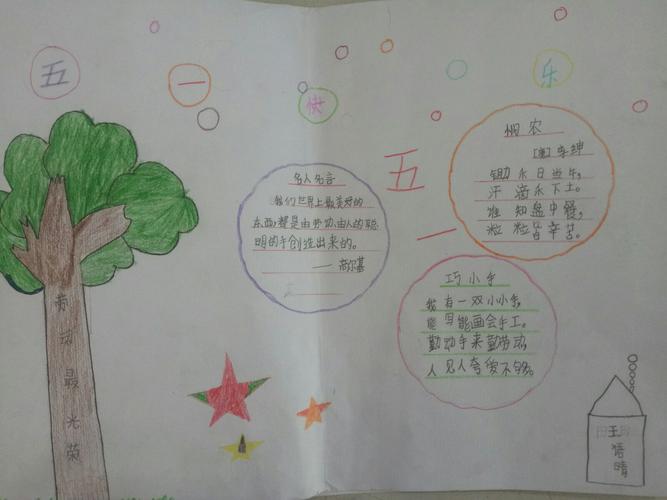 五 一 快 乐
劳动最光荣
名人名言
我们世界上最美好的
东西,都是由劳动、由人的聪
明的手创造出来的。
——高尔基
五
一
悯农
[唐]李绅
锄禾日当午,
汗滴禾下土。
谁知盘中餐,
粒粒皆辛苦。
巧小手
我有一双小小手,
能写能画会手工。
勤动手来勤劳动,
人见人夸爱不够。
王
悟晴